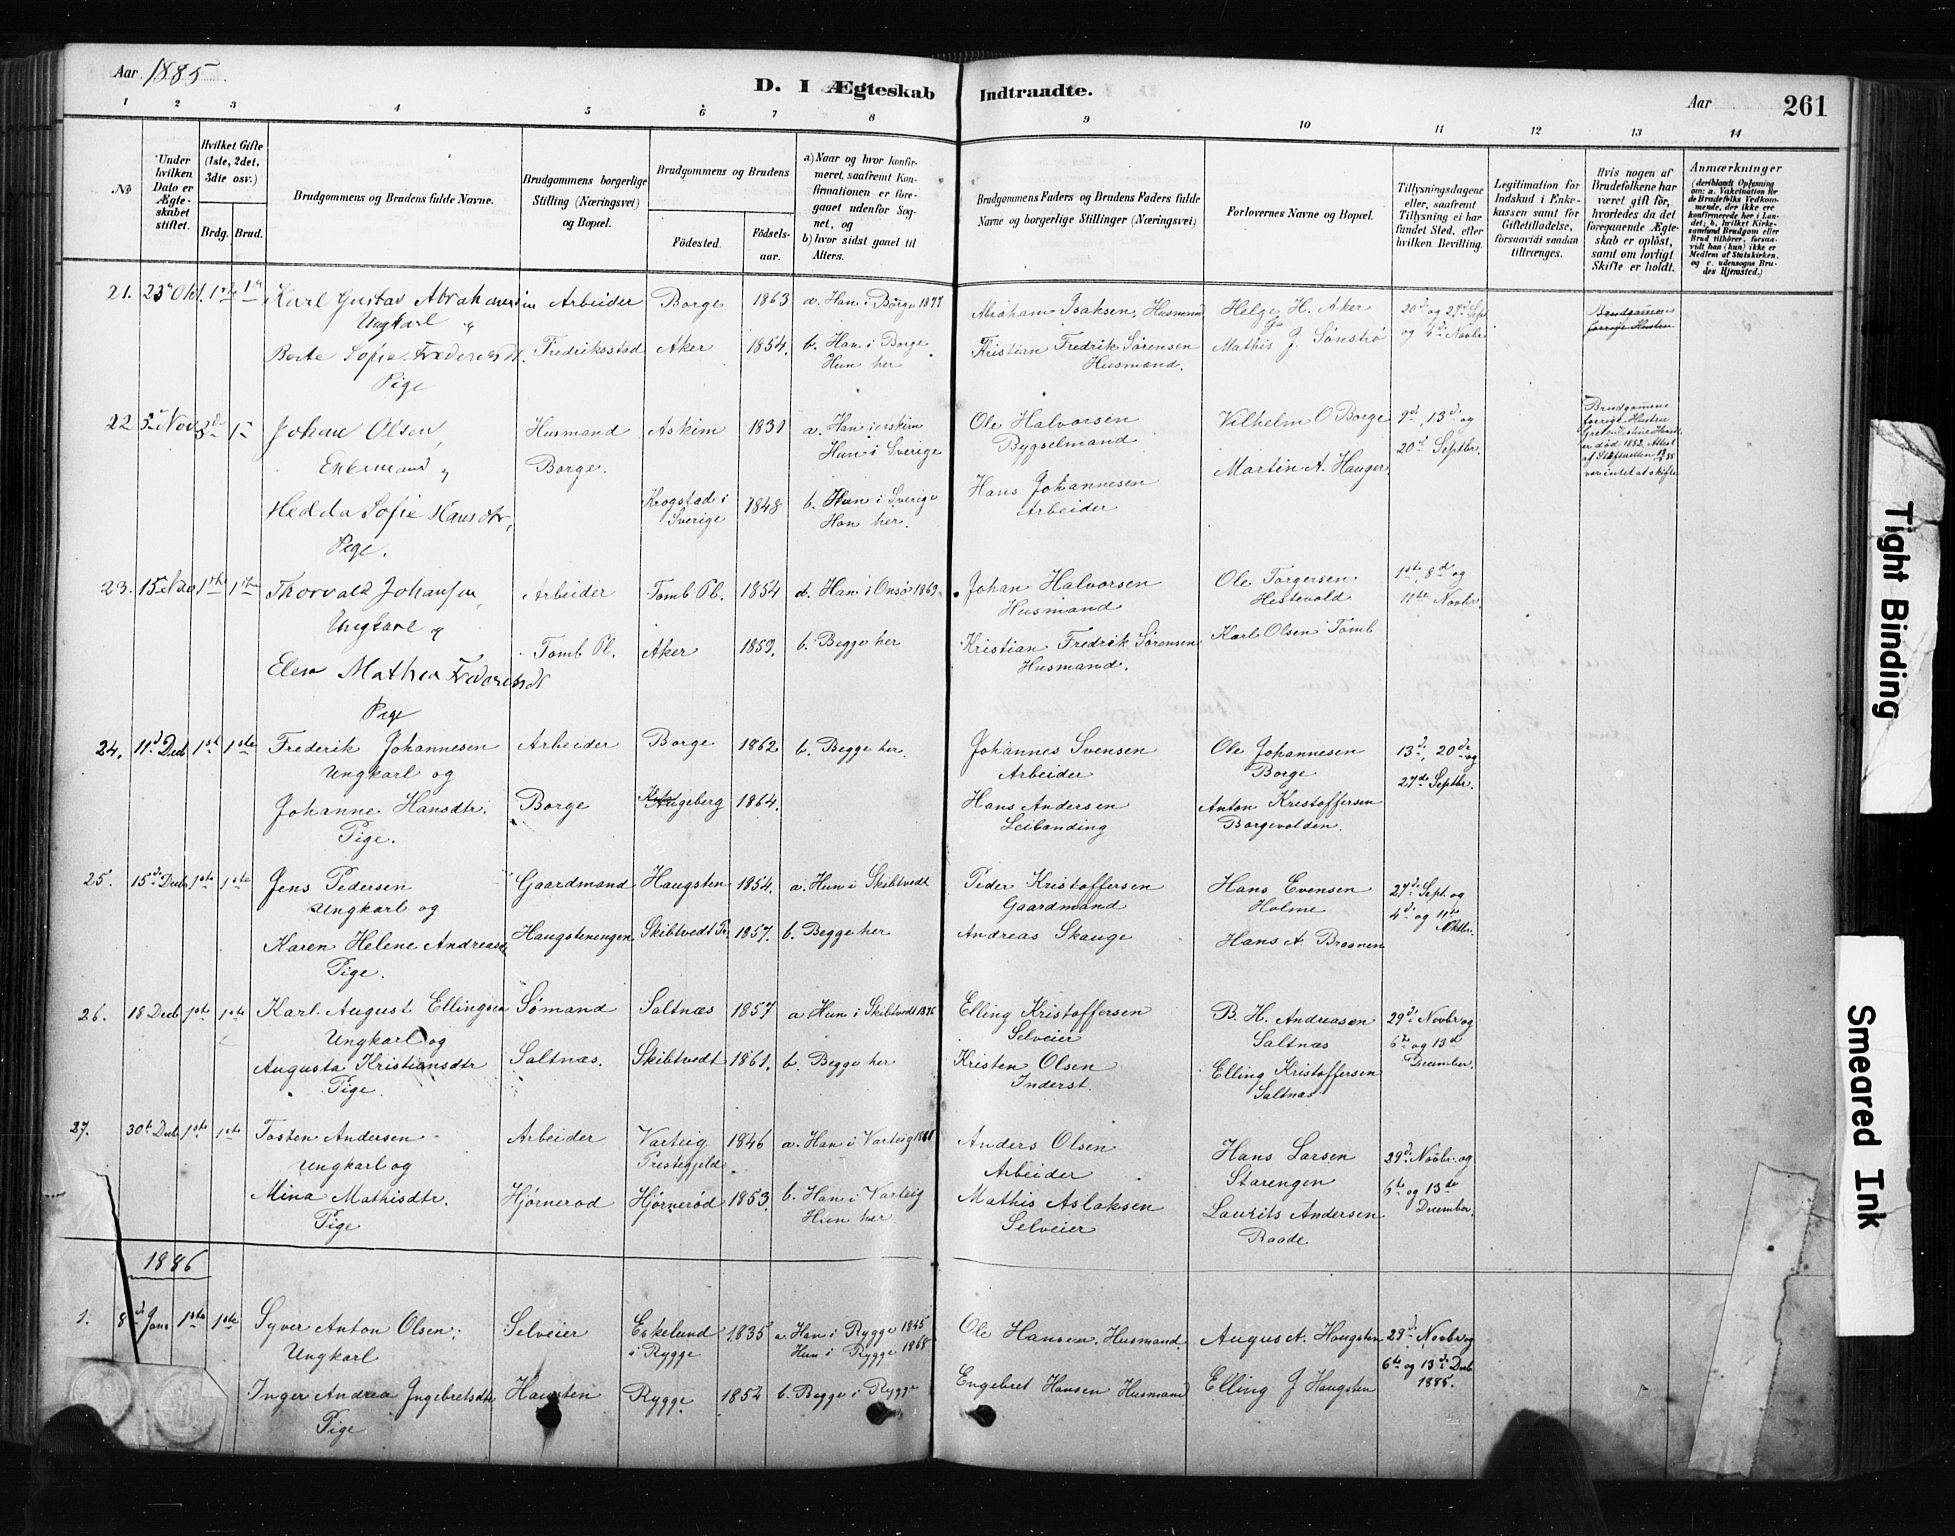 Aar 1885.
D. I Ægteskab Indtraadte.
Aar 261
1 2 3 4 5 6 7 8 9 10 11 12 13 14
No
Under hvilken Dato er Ægteskabet stiftet.
Hvilket Gifte (1ste, 2det, 3die osv.)
Brdg. Brud.
Brudgommens og Brudens fulde Navne.
Brudgommens borgerlige Stilling (Næringsvei) og Bopæl.
Brudgommens og Brudens
Födested.
Födselsaar.
a) Naar og hvor konfirmeret, saafremt Konfirmationen er foregaaet udenfor Sognet, og
b) hvor sidst gaaet til Alters.
Brudgommens Faders og Brudens Faders fulde Navne og borgerlige Stillinger (Næringsvei)
Forlovernes Navne og Bopæl.
Tillysningsdagene eller, saafremt Tillysning ei har fundet Sted, efter hvilken Bevilling.
Legitimation for Indskud i Enkekassen samt for Giftetilladelse, forsaavidt saadan tiltrænges.
Hvis nogen af Brudefolkene har været gift før, hvorledes da det foregaaende Ægteskab er oplöst, samt om lovligt Skifte er holdt.
Anmærkninger
(deriblandt Oplysning om: a. Vakcination for de Brudefolks Vedkommende, der ikke ere konfirmerede her i Landet; b. hvilket Kirkesamfund Brudgom eller Brud tilhörer, forsaavidt han (hun) ikke er Medlem af Statskirken, og c. udensogns Brudes Hjemsted.)
21. 23 Okt. 1ste 1ste Karl Gustav Abrahamsen Arbeider Borge 1863 a. Han i Borge 1877 Abraham Isaksen, Husmand Helge H. Aker 20de og 27de Sept.
Ungkarl og
Berte Sofie Frederiksdt. Fredriksstad Aker 1854. b. Han i Borge Kristian Fredrik Sørensen Mathis J. Sønstrø og 4de Novbr
Pige Hun her Husmand.
Brudgommens forrige Hustru
22 3 Nov 2d 1 Johan Olsen, Husmand Askim 1831 a. Han i Askim Ole Halvorsen Vilhelm O Borge 9de, 13de og
Enkemand og Borge. Hun i Sverige Bygselmand Martin A. Hauger 20de Septbr.
Hedda Sofie Hansdtr, Krogstad i Sverige 1848 b. Hun i Sverige Hans Johannesen
Pige. Han her. Arbeider
Brudgommens forrige Hustru
er död 1882. Attest
af Skifteretten
23. 15 Nov 1ste 1ste Thorvald Johansen, Arbeider Tomb Pl. 1854 a. Han i Onsö 1869. Johan Halvorsen Ole Torgersen 1ste, 8de og
Ungkarl og Husmand Hestevold 11te Novbr.
Elen Mathea Frederiksdt Tomb Pl. Aker 1859. b. Begge her Kristian Fredrik Sørensen Karl Olsen Tomb
Pige Husmand.
24. 11d Decb 1st 1ste Frederik Johannesen Arbeider Borge 1862 b. Begge her. Johannes Svensen Ole Johannesen 13de, 20de og
Ungkarl og Arbeider Borge 27de Septbr.
Johanne Hansdtr. Borge Augeberg 1864. Hans Andersen Anton Kristoffersen
Pige. Leilænding Borgevolden.
25. 15d Decb 1ste 1ste Jens Pedersen Gaardmand Haugsten 1854. a. Hun i Skibtvedt Peder Kristoffersen Hans Evensen 27de Sept. og
Ungkarl og Gaardmand Holme 4de og 11te Oktbr.
Karen Helene Andreasd Haugstenengen Skibtvedt Pr. 1857. b. Begge her Andreas Skauge Hans A. Braanen
Pige.
26. 18 Decb 1ste 1ste Karl August Ellingsen Sömand Saltnæs 1857 a Hun i Skibtvedt 1876 Elling Kristoffersen B. H. Andreasen 29de Novbr og
Ungkarl og Selveier Saltnæs 6te og 13de
Augusta Kristiansdtr Saltnæs. Skibtvedt 1861. b. Begge her Kristen Olsen Elling Kristoffersen December.
Pige. Inderst. Saltnæs
27. 30t Decb 1ste 1ste Tosten Andersen Arbeider Varteig Prestegjeld 1846 a. Han i Varteig Anders Olsen Hans Larsen 29de Novbr. og
Ungkarl og Arbeider Starengen 6te og 13de
Mina Mathisdtr. Hjørnerod Hjørnerød 1853. b. Han i Varteig Mathis Aslaksen Laurits Andersen December.
Pige Hun her Selveier Raade
1886
1. 8d Jan 1ste 1ste Syver Anton Olsen Selveier Eskelund i Rygge 1835 a. Han i Rygge 1845 Ole Hansen, Husmand. August A. Haugsten 29de Novbr og
Ungkarl Hun i Rygge 1868 6te og 13de Decb 1885.
Inger Andrea Ingebretsdtr Haugsten Rygge 1852 b. Begge i Rygge Engebret Hansen Husmand Elling J Haugsten
Pige
Tight Binding
Smeared Ink